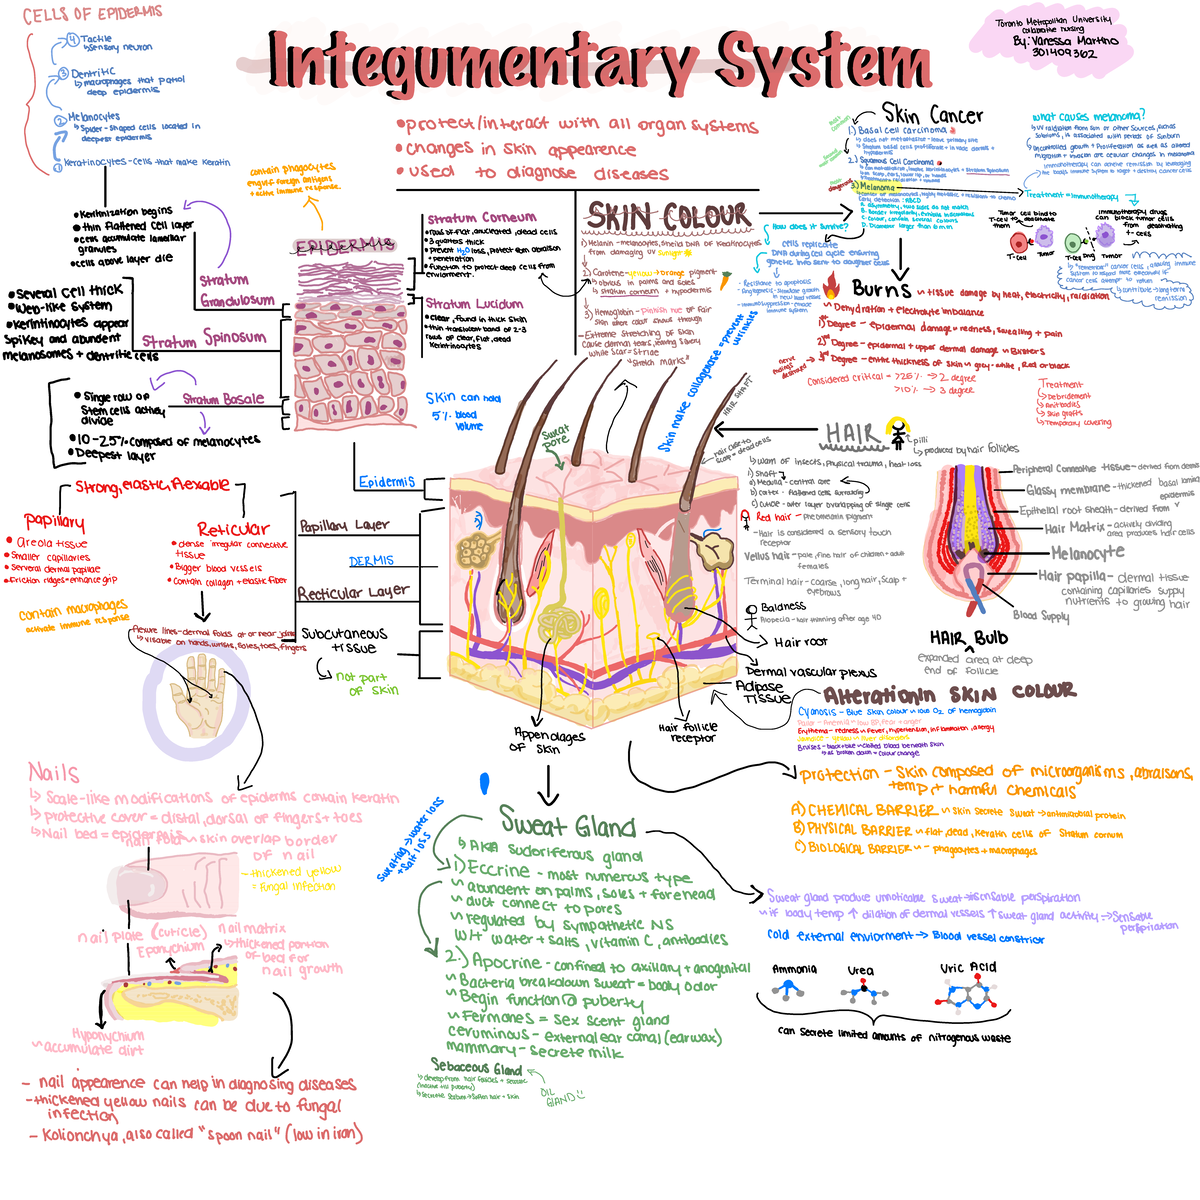 CELLS OF EPIDERMIS
④ Tactile
↳ Sensory neuron
③ Dentritic
↳ macrophages that patrol
deep epidermis
② Melanocytes
↳ Spider-shaped cells located in
deepest epidermis
① Keratinocytes-cells that make Keratin
Integumentary System
Toronto Metropolitan University
collabrative nursing
By: Vanessa Martino
301409362
•protect/interact with all organ systems
•changes in skin appearence
•used to diagnose diseases
contain phagocytes
engulf foreign antigens
+ active immune response.
•Keritinization begins
•thin flattened cell layer
•cells accumulate lamellar
granules
•cells above layer die
Stratum
Grandulosum
•Several Cell thick
•Web-like System
•Kerintinocytes appear
Spikey and abundent
melanosomes + dentritic cells
Stratum Spinosum
•Single row of
Stem cells activly
divide
•10-25% composed of melanocytes
•Deepest layer
Stratum Basale
EPIDERMIS
Stratum Corneum
•rows of flat, anucliated, dead cells
•3 quarters thick
•prevent H2O loss, protect from abrasion
+penetration
•function to protect deep cells from
enviorment.
Stratum Lucidum
•clear, found in thick skin
•thin translucent band of 2-3
rows of clear, flat, dead
Kerintinocytes
SKIN COLOUR
1) Melanin - melanocytes, sheild DNA of keratinocytes
from damaging UV sunlight
2) Carotene-yellow→orange pigment
↳ obvious in palms and soles
↳ stratum corneum + hypodermis
3) Hemoglobin - Pinkish hue of fair
Skin ↳ore color shows through
Extreme Stretching of skin
cause dermal tears, leaving silvery
white scar=Striae
"Stretch marks"
Skin Cancer
1) Basal Cell carcinoma
↳ does not metastasize-leave primary site
↳ Stratum basal cells proliferate + invade dermis +
hypodermis
2) Squamous Cell Carcinoma
3) Melanoma
↳ cancer of melanocytes, highly metastatic + resistant to chemo
Early detection : ABCD
A. Asymmetry, two sides do not match
B. Border irregularity, exhibits indentations
C. Colour, contain several colours
D. Diameter larger than 6mm
What causes melanoma?
↳ UV radiation from sun or other sources,
is associated with periods of sunburn
↳ uncontrolled growth + Proliferation as well as altered
migration + invasion are cellular changes in melanoma
Treatment = Immunotherapy
Tumor cell bind to
T-cell to deactivate
them
T-cell
Tumor
immunotherapy drugs
can block tumor cells
from deactivating
t-cells
T-cell
Drug
Tumor
↳ "remember" cancer cells, allowing immune
system to respond more effectively if
cancer cell attempt to return
↳ contribute→long term
remission
How does it survive?
cells replicate
DNA during cell cycle ensuring
genetic info sent to daughter cells
- Resistance to apoptosis
- Angiogenesis - Stimulate growth
in new blood vessels
- immunosuppression - evade
immune system
Burns ~ tissue damage by heat, electricity, radiation
~ Dehydration + electrolyte imbalance
1st Degree - epidermal damage=redness, swealling + pain
2nd Degree - epidermal + upper dermal damage ~ Blisters
3rd Degree - entire thickness of skin ~ grey-white, Red or black
nerve
endings
destroyed
Considered critical = >25% → 2 degree
>10% → 3 degree
Treatment
↳ Debridement
↳ Antibodies
↳ Skin grafts
↳ Temporary covering
Skin can hold
5% blood
volume
Skin make collagenase=prevent wrinkles
HAIR SHAFT
Sweat
pore
HAIR
pilli
↳ produced by hair follicles
↳ Warn of insects, physical trauma, heat loss
1) Shaft
a) Medulla - central core
b) Cortex - flattened cells surrounding
c) Cuticle - outer layer overlapping of single cells
Red hair - pheomelanin pigment
-Hair is considered a sensory touch
receptor
Vellus hair - pale, fine hair of children + adult
females
Terminal hair - coarse, long hair, scalp +
eyebrows
Baldness
Alopecia - hair thinning after age 40
Peripheral Connective tissue - derived from dermis
Glassy membrane - thickened basal lamina
epidermis
Epithelial root sheath - derived from
Hair Matrix - actively dividing
area produces hair cells
Melanocyte
Hair papilla - dermal tissue
containing capillaries supply
nutrients to growing hair
Blood Supply
HAIR Bulb
expanded area at deep
end of follicle
Strong, elastic, flexable
papillary
• Areola tissue
• Smaller capillaries
• Serveral dermal papillae
•Friction ridges=enhance grip
Reticular
• dense irregular connective
tissue
• Bigger blood vessels
• Contain collagen + elastic fiber
contain macrophages
activate immune response
flexure lines-dermal folds at or near joints
↳ visable on hands, wrists, soles, toes, fingers
Epidermis
Papillary Layer
DERMIS
Recticular Layer
Subcutaneous
tissue
↳ not part
of skin
Hair root
Dermal vascular plexus
Adipose
TISSUE
Hair follicle
receptor
Appendages
of skin
Alteration in SKIN COLOUR
Cyanosis - Blue Skin colour ~ low O2 of hemoglobin
Palor - Anemia ~ low BP, fear + anger
Erythema - redness ~ fever, hypertension, inflammation, allergy
Jaundice - yellow ~ liver disorders
Bruises - black+blue ~ clotted blood beneath skin
↳ as broken down = colour change
protection - Skin composed of microorganisms, abraisons,
temp + harmful chemicals
A) CHEMICAL BARRIER ~ skin secrete sweat→antimicrobial protein
B) PHYSICAL BARRIER ~ flat, dead, keratin cells of Stratum cornum
C) BIOLOGICAL BARRIER ~ - phagocytes + macrophages
Nails
↳ Scale-like modifications of epiderms contain keratin
↳ protective cover = distal, dorsal of fingers + toes
↳ Nail bed = epidermis
nail fold ~ skin overlap border
of nail
- thickened yellow
= fungal infection
nail plate (cuticle)
Eponychium
nail matrix
↳ thickened portion
of bed for
nail growth
Hyponychium
~ accumulate dirt
- nail appearence can help in diagnosing diseases
-thickened yellow nails can be due to fungal
infection
- Kolionchya, also called "spoon nail" (low in iron)
sweating→water loss
+ salt loss
Sweat Gland
↳ AKA sudoriferous gland
1) Eccrine - most numerous type
~ abundent on palms, soles + forehead
~ duct connect to pores
~ regulated by sympathetic NS
W/ water + salts, vitamin C, antibodies
2.) Apocrine - confined to axillary + anogenital
~ Bacteria breakdown sweat = body odor
~ Begin function @ puberty
~ Fermones = sex scent gland
ceruminous - external ear canal (earwax)
mammary - secrete milk
Sebaceous Gland
↳ develop from hair follicles + secrete
(inactive till puberty)
↳ Secretes Sebum→Soften hair + skin
OIL
GLAND
Sweat gland produce unnoticable sweat→insensable perspiration
~ if body temp ↑ dilation of dermal vessels ↑ sweat gland activity → Sensable
perspiration
Cold external enviorment → Blood vessel constrict
Ammonia
Urea
Uric Acid
can secrete limited amounts of nitrogenous waste